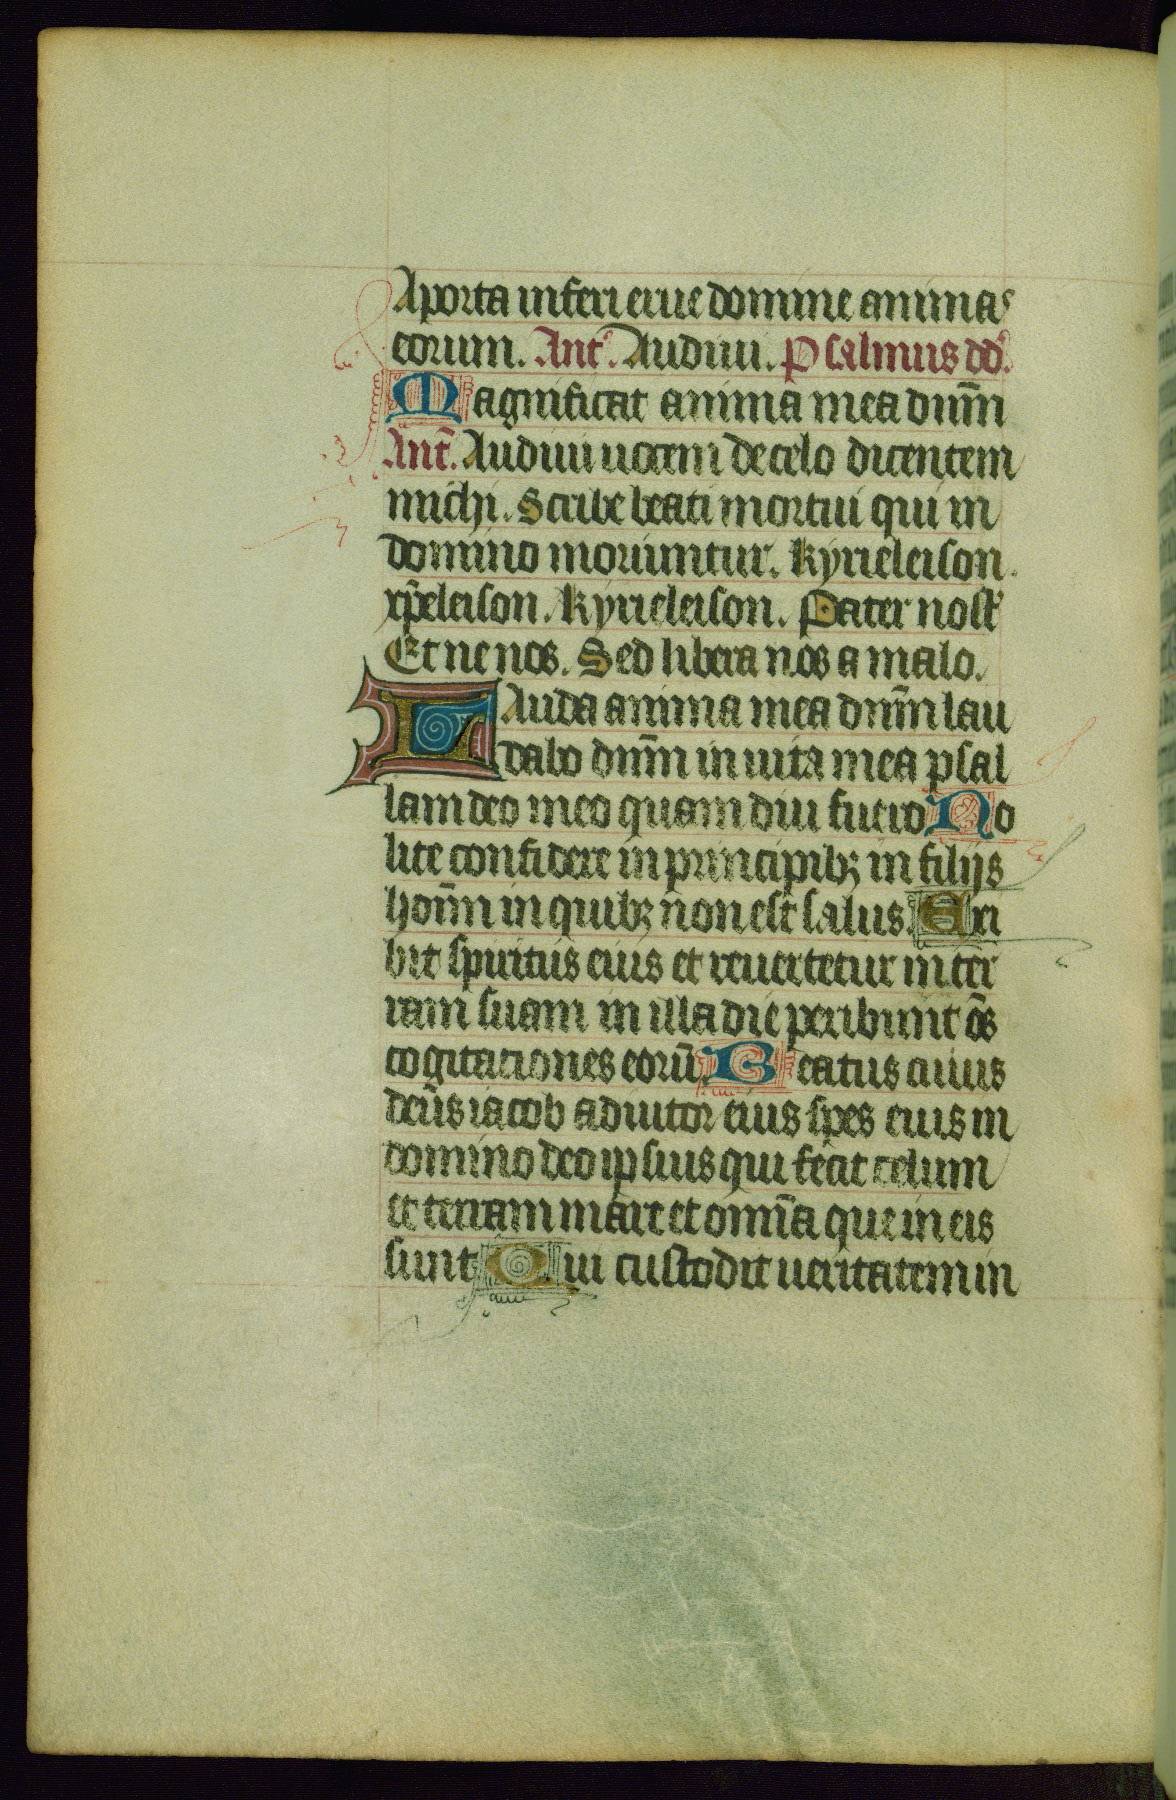 A porta inferi erue domine animas
eorum. Ant̄. Audiui. Psalmus dd̄.
Magnificat anima mea dnm̄
Ant̄. Audiui uocem de celo dicentem
michi. Scribe beati mortui qui in
domino moriuntur. kyrieleison.
xp̄eleison. Kyrieleison. Pater nost̄
Et ne nos. Sed libera nos a malo.
LAuda anima mea dnm̄ lau
dabo dnm̄ in uita mea psal
lam deo meo quam diu fuero No
lite confidere in principibꝫ in filijs
hom̄n in quibꝫ non est salus. Exi
bit spiritus eius et reuertetur in ter
ram suam in illa die peribunt om̄s
cogitationes eorū. Beatus cuius
deus iacob adiutor eius spes eius in
domino deo ipsius qui fecit celum
et terram mare et omn̄ia que in eis
sunt Qui custodit ueritatem in